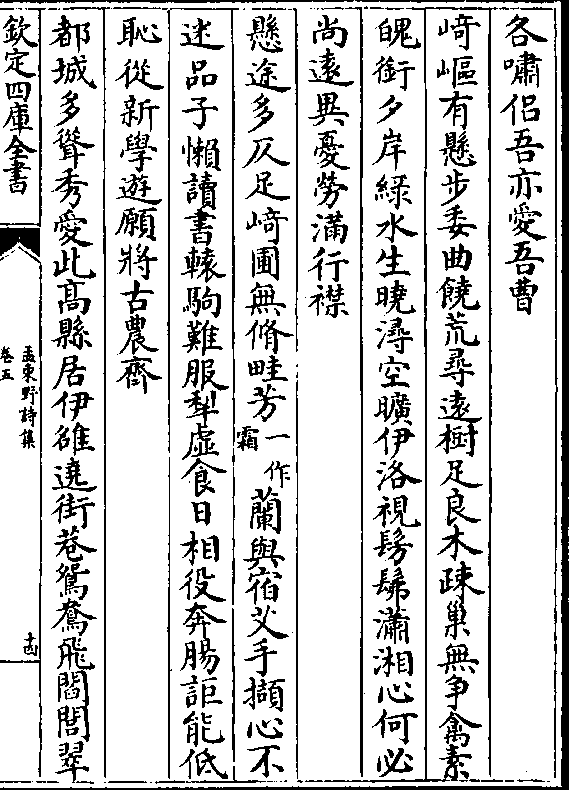 各嘯侶吾亦愛吾曹
﨑嶇有懸步委曲饒荒尋遠樹足良木疎巢無争禽素
魄銜夕岸綠水生曉潯空曠伊洛視髣髴瀟湘心何必
尚遠異憂勞滿行襟
懸途多仄足﨑圃無脩畦芳一作霜蘭與宿艾手擷心不
迷品子懶讀書轅駒難服犁虛食日相役奔腸詎能低
恥從新學遊願將古農齊
都城多聳秀愛此髙縣居伊雒遶街巷鴛鴦飛閻閭翠
欽定四庫全書
孟東野詩集
卷五
十四